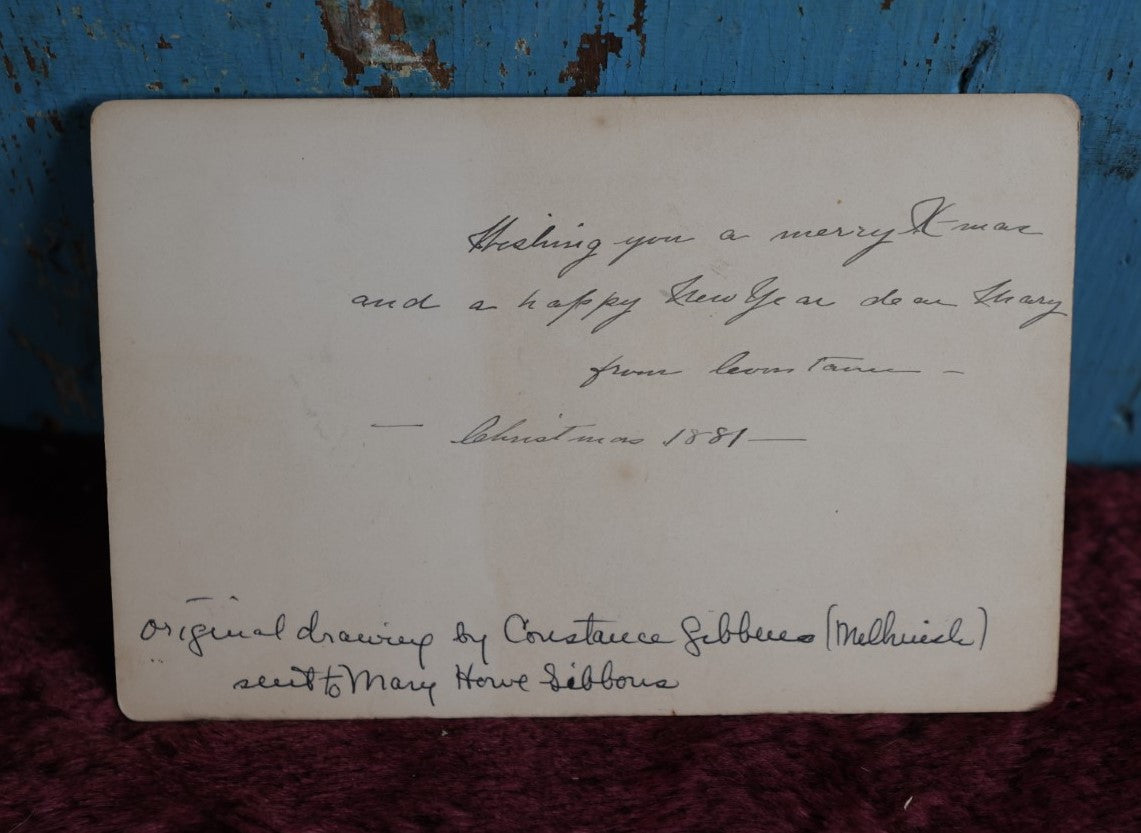 Wishing you a merry X-mas
and a happy New Year dear Mary
from Constance –
— Christmas 1881 —
original drawing by Constance Gibbons (Melhuish)
sent to Mary Howe Gibbons